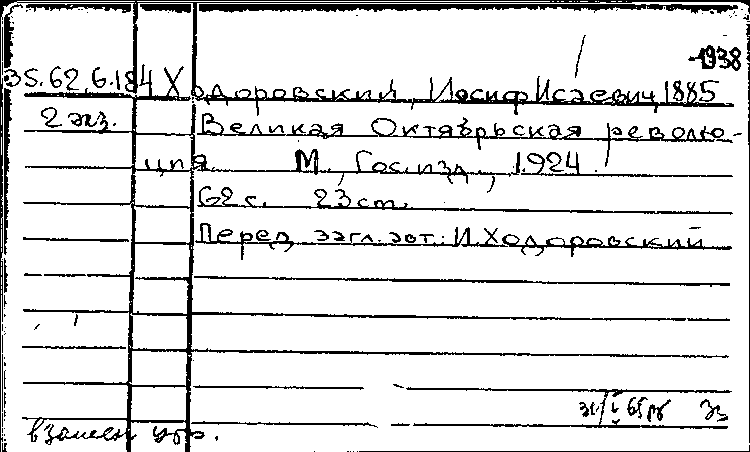 -1938
35.62.6.184 Ходоровский, Иосиф Исаевич, 1885
2 экз. Великая Октябрьская револю-
ция М., Гос. изд., 1924.
62 с. 23 ст.
Перед загл. авт.: И. Ходоровский
31/V 65
взамен утр.